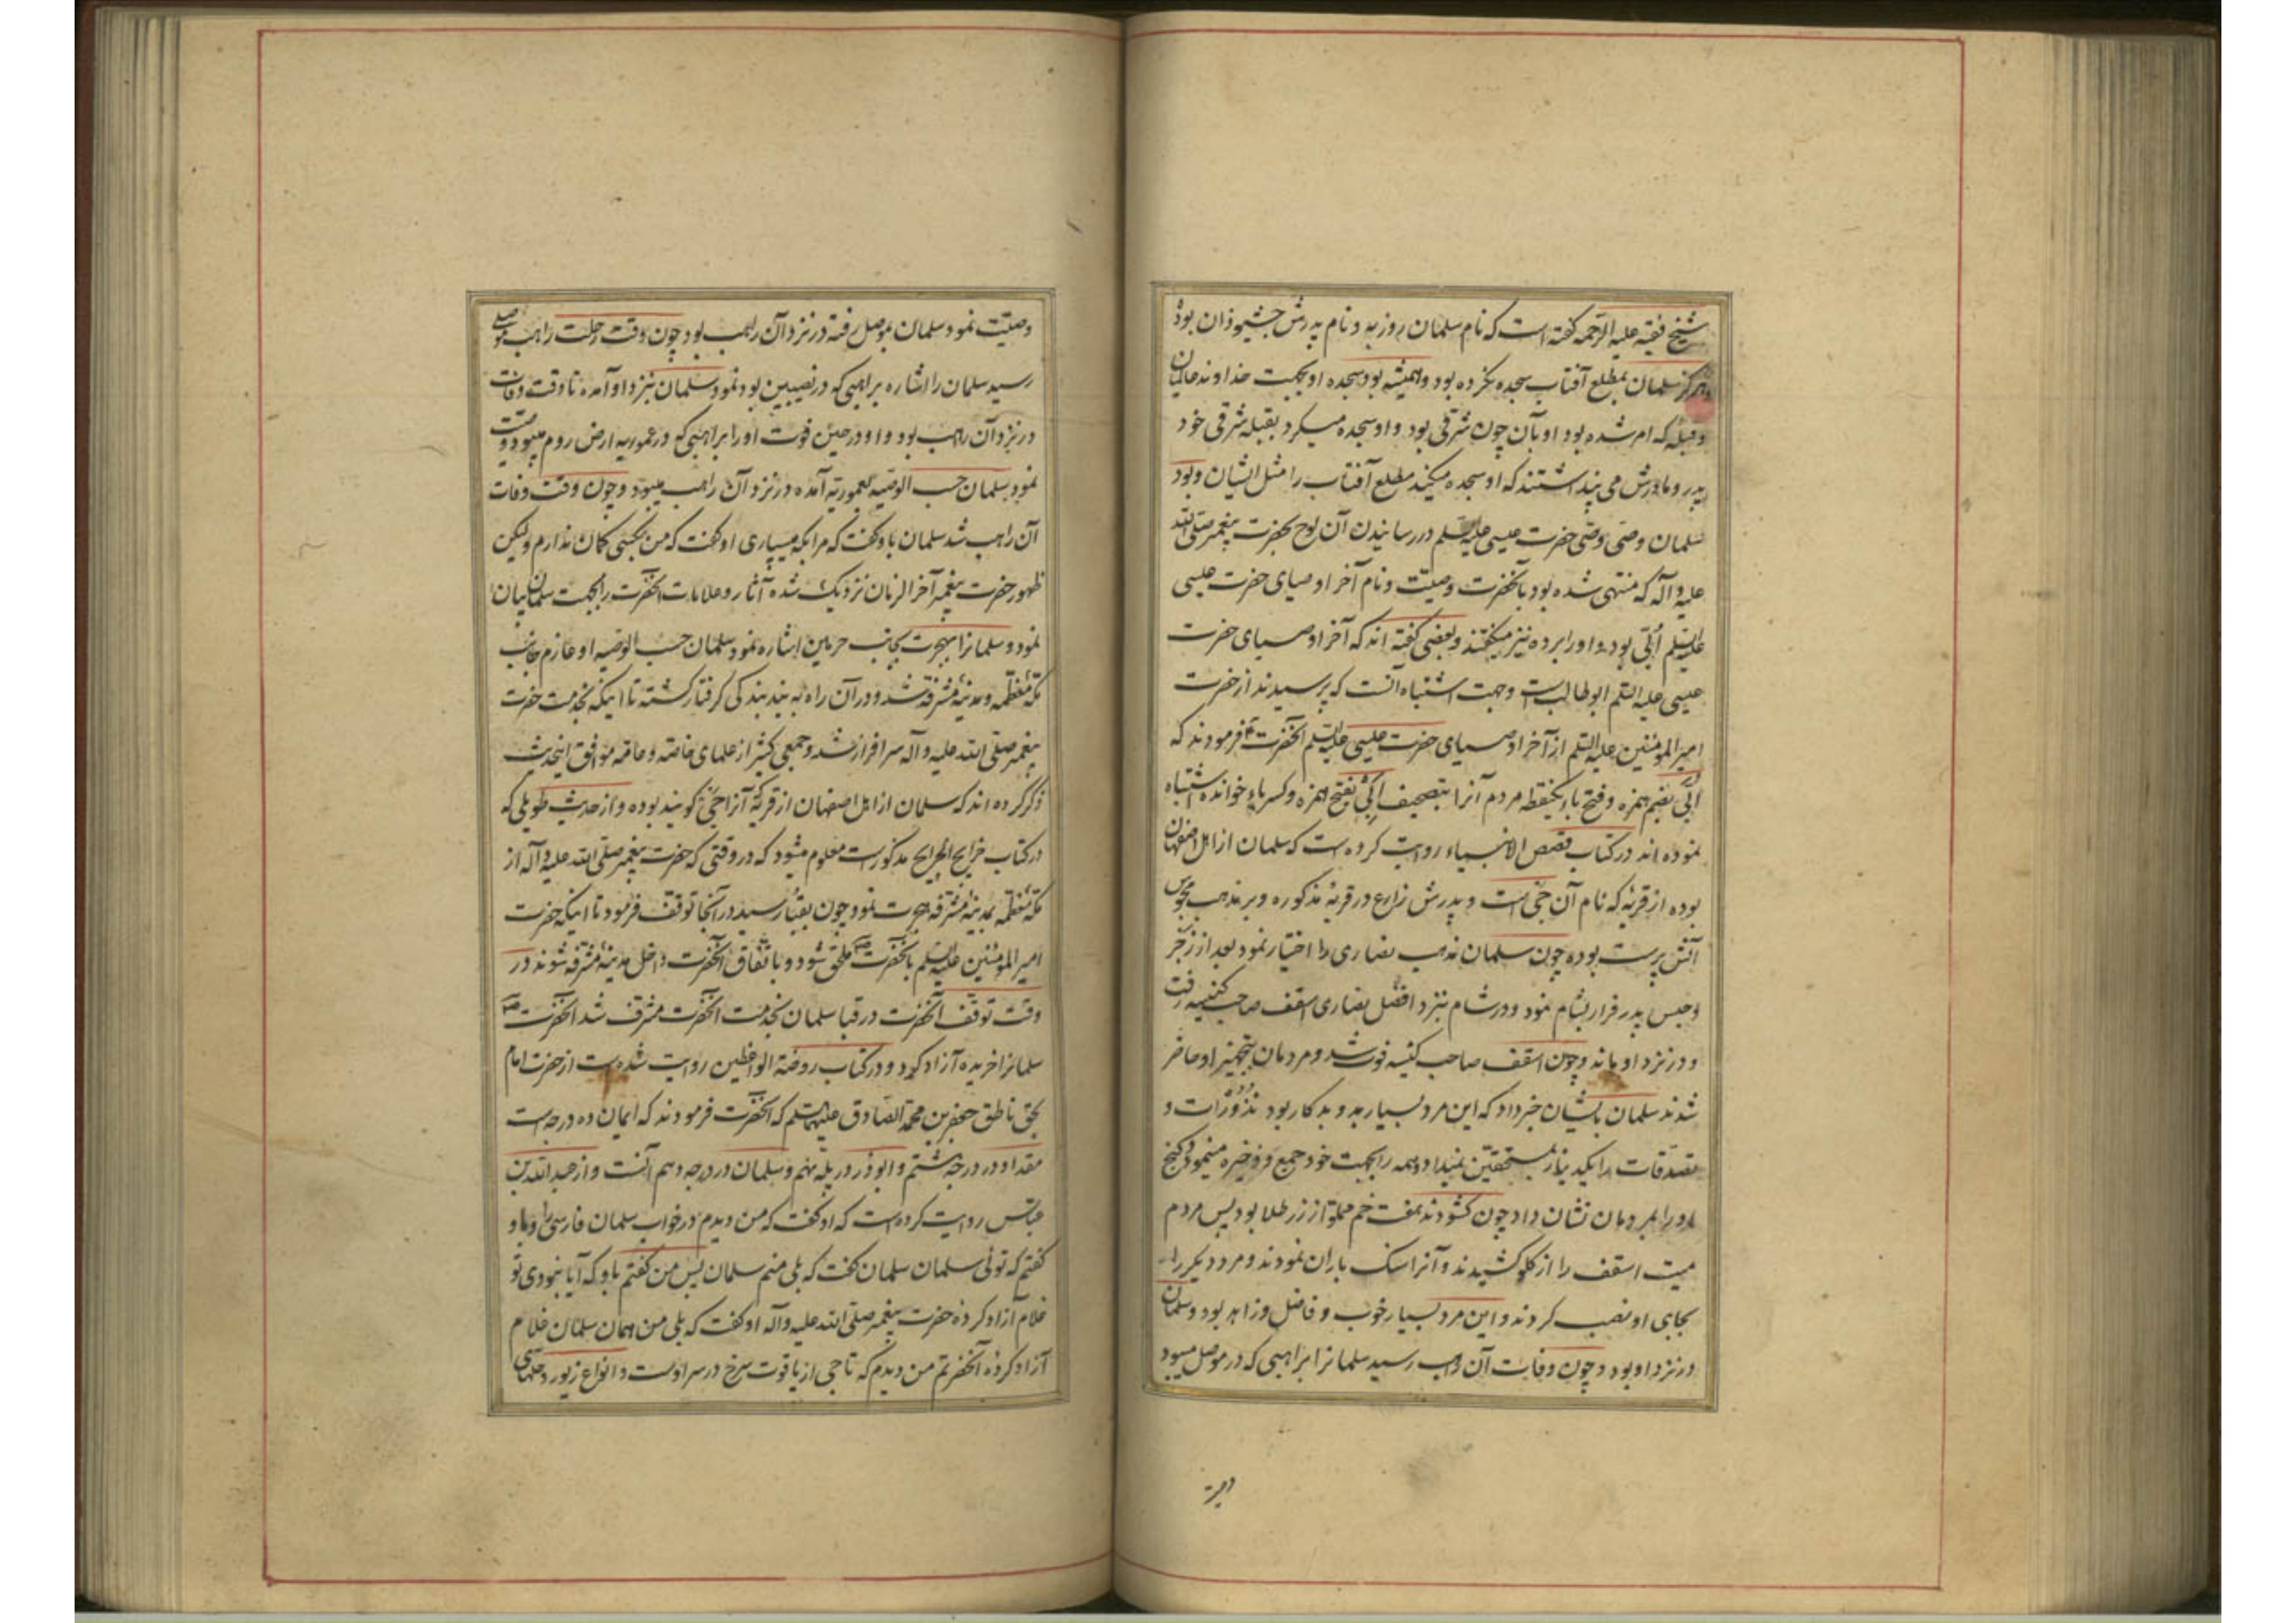 شیخ فقیه علیه الرحمه گفته است که نام سلمان روزبه و نام پدرش جشبوذان بود
و هرگز سلمان بمطلع آفتاب سجده نکرده بود و همیشه بود سجده او بجهت خداوند عالمیان
و قبله که امر شده بود او بآن چون شرقی بود و او سجده میکرد بقبله شرقی خود
پدر و مادرش می پنداشتند که او سجده میکند مطلع آفتاب را مثل ایشان و بود
سلمان وصی وصی حضرت عیسی علیه السلم در رسانیدن آن لوح بحضرت پیغمبر صلی الله
علیه و آله که منتهی شده بود بآنحضرت وصیت و نام آخر اوصیای حضرت عیسی
علیه السلم اُبَیّ بوده و او را برده نیز میگفتند و بعضی گفته اند که آخر اوصیای حضرت
عیسی علیه السلم ابوطالب است و جهت اشتباه آنست که پرسیدند از حضرت
امیر المؤمنین علیه السلم از آخر اوصیای حضرت عیسی علیه السلم آنحضرت فرمودند که
اُبَیّ بضم همزه و فتح باء یکنقطه مردم آنرا بتصحیف اَبِی بفتح همزه و کسر باء خوانده اشتباه
نموده اند در کتاب قصص الانبیاء روایت کرده است که سلمان از اهل اصفهان
بوده از قریه که نام آن جی است و پدرش زارع در قریه مذکوره و بر مذهب مجوس
آتش پرست بوده چون سلمان مذهب نصاری را اختیار نمود بعد از زجر
و حبس پدر فرار بشام نمود و در شام بنزد افضل نصاری اسقف صاحب کنیسه رفت
و در نزد او ماند و چون اسقف صاحب کنیسه فوت شد و مردمان بتجهیز او حاضر
شدند سلمان بایشان خبر داد که این مرد بسیار بد و بدکار بود نذورات و
تصدقات را یکدینار بمستحقین نمیداد و همه را بجهت خود جمع و ذخیره مینمود و گنج
او را بمردمان نشان داد چون گشودند هفت خم مملو از زر طلا بود پس مردم
میت اسقف را از گلو کشیدند و آنرا سنگ باران نمودند و مرد دیگر را
بجای او نصب کردند و این مرد بسیار خوب و فاضل و زاهد بود و سلمان
در نزد او بود و چون وفات آن راهب رسید سلمانرا براهبی که در موصل میبود
وصیت نمود سلمان بموصل رفته در نزد آن راهب بود چون وقت رحلت راهب موصلی
رسید سلمان را اشاره براهبی که در نصیبین بود نمود سلمان بنزد او آمده تا وقت وفات
در نزد آن راهب بود و او در حین فوت او را براهبی که در عموریه ارض روم میبود وصیت
نمود سلمان حسب الوصیه بعموریه آمده در نزد آن راهب میبود و چون وقت وفات
آن راهب شد سلمان باو گفت که مرا بکه میسپاری او گفت که من بکسی گمان ندارم ولیکن
ظهور حضرت پیغمبر آخر الزمان نزدیک شده آثار و علامات آنحضرت را بجهت سلمان بیان
نمود و سلمانرا بهجرت بجانب حرمین اشاره نمود سلمان حسب الوصیه او عازم جانب
مکه معظمه و مدینه مشرفه شد و در آن راه به بند بندگی گرفتار گشته تا اینکه بخدمت حضرت
پیغمبر صلی الله علیه و آله سرافراز شد و جمعی کثیر از علمای خاصه و عامه موافق اینحدیث
ذکر کرده اند که سلمان از اهل اصفهان از قریه که آنرا جی گویند بوده و از حدیث طویلی که
در کتاب خرایج الجرایح مذکور است معلوم میشود که در وقتی که حضرت پیغمبر صلی الله علیه و آله از
مکه معظمه بمدینه مشرفه هجرت نمود چون بقبا رسید در آنجا توقف فرمود تا اینکه حضرت
امیر المؤمنین علیه السلم بآنحضرت ملحق شود و باتفاق آنحضرت داخل مدینه مشرفه شوند در
وقت توقف آنحضرت در قبا سلمان بخدمت آنحضرت مشرف شد آنحضرت
سلمانرا خریده آزاد کرد و در کتاب روضة الواعظین روایت شده است از حضرت امام
بحق ناطق جعفر بن محمد الصادق علیهما السلم که آنحضرت فرمودند که ایمان ده درجه است
مقداد در درجه هشتم و ابوذر در پله نهم و سلمان در درجه دهم آنست و از عبد الله بن
عباس روایت کرده است که او گفت که من دیدم در خواب سلمان فارسی را و باو
گفتم که توئی سلمان سلمان گفت که بلی منم سلمان پس من گفتم باو که آیا نبودی تو
غلام آزاد کرده حضرت پیغمبر صلی الله علیه و آله او گفت که بلی من همان سلمان غلام
آزاد کرده آنحضرتم من دیدم که تاجی از یاقوت سرخ در سر اوست و انواع زیور و حلهای
وصیت